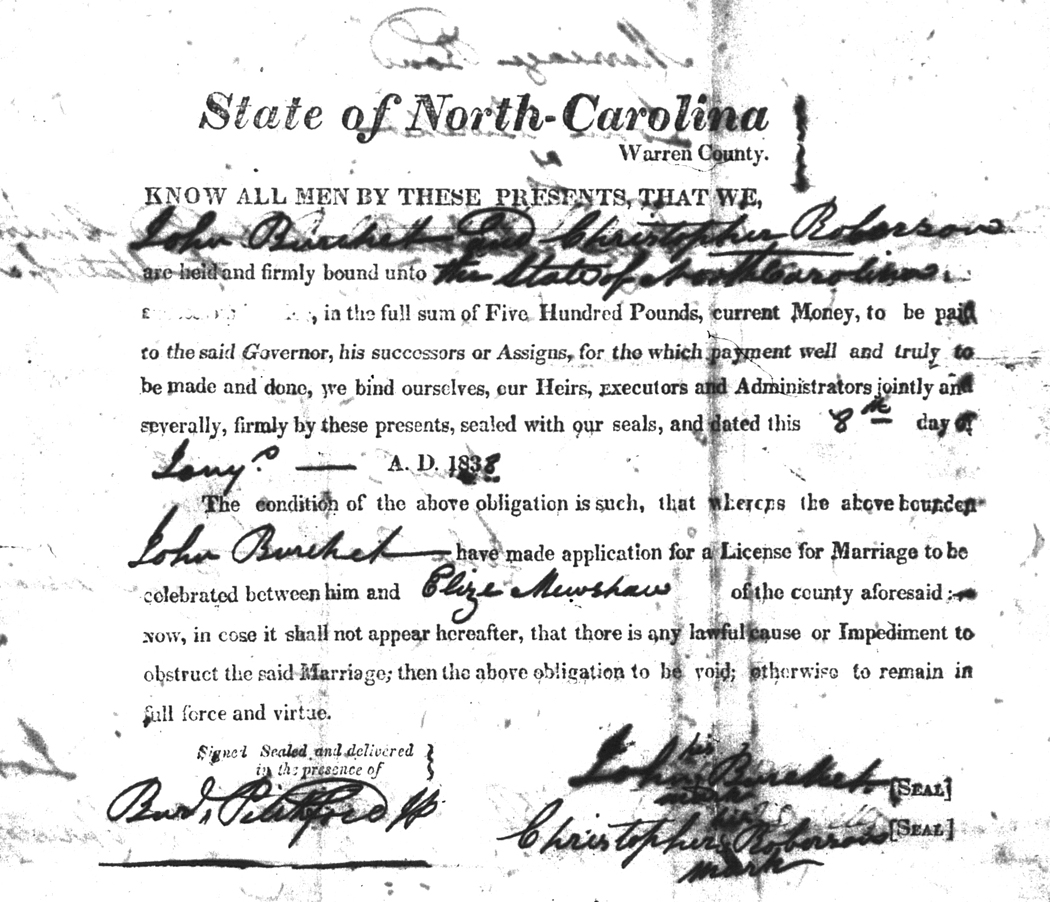 State of North-Carolina
Warren County.
KNOW ALL MEN BY THESE PRESENTS, THAT WE,
John Burchet and Christopher Roberson
are held and firmly bound unto the State of North Carolina
, in the full sum of Five Hundred Pounds, current Money, to be paid
to the said Governor, his successors or Assigns, for the which payment well and truly to
be made and done, we bind ourselves, our Heirs, Executors and Administrators jointly and
severally, firmly by these presents, sealed with our seals, and dated this 8th day of
Jany. — A. D. 1838
The condition of the above obligation is such, that whereas the above bounden
John Burchet have made application for a License for Marriage to be
celebrated between him and Eliza Mewshaw of the county aforesaid:
now, in case it shall not appear hereafter, that there is any lawful cause or Impediment to
obstruct the said Marriage; then the above obligation to be void; otherwise to remain in
full force and virtue.
Signed Sealed and delivered
in the presence of
his
John Burchet [SEAL]
mark
Pitchford
his
Christopher Roberson [SEAL]
mark
Marriage Bond